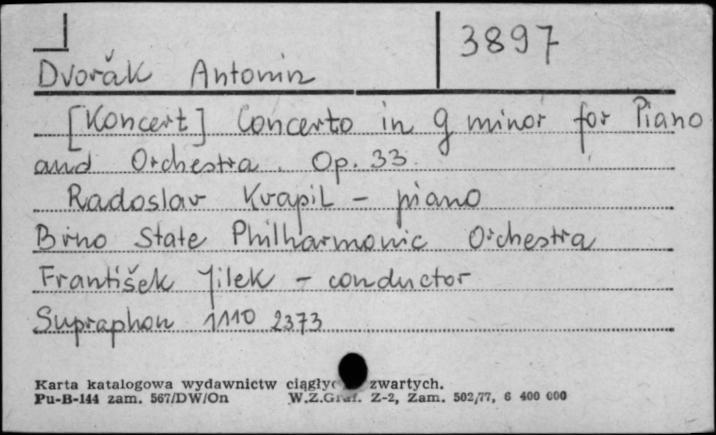 3897
Dvořák Antonin
[Koncert] Concerto in g minor for Piano
and Orchestra. Op. 33
Radoslav Kvapil - piano
Brno State Philharmonic Orchestra
František Jilek - conductor
Supraphon 1110 2373
Karta katalogowa wydawnictw zwartych.
Pu-B-144 zam. 567/DW/On W.Z.Graf. Z-2, Zam. 502/77, 6 400 000